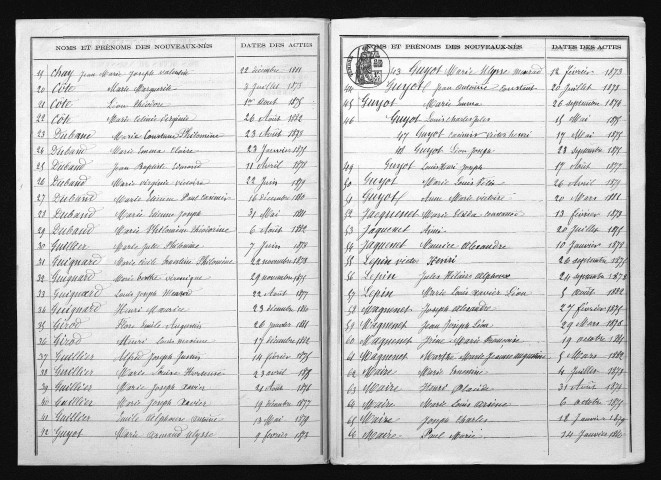 NOMS ET PRÉNOMS DES NOUVEAUX-NÉS DATES DES ACTES
19 Chay Jean Marie Joseph Valentin 22 décembre 1881
20 Côte Marie Marguerite 3 Juillet 1875
21 Côte Léon Théodore 1er Août 1875
22 Côte Marie 26 Août 1882
23 Duband Marie Constance Philomène 23 Août 1873
24 Duband Marie Emma Claire 23 Janvier 1875
25 Duband Jean Baptiste Edouard 11 Avril 1878
26 Duband Marie Virginie Victoire 22 Juin 1879
27 Duband Marie Paul Casimir 16 décembre 1880
28 Duband Marie Etienne Joseph 31 Mai 1881
29 Duband Marie Philomène Victorine 6 Août 1882
30 Marie Julie Philomène 7 Juin 1878
31 Guignard Marie Philomène 22 novembre 1873
32 Guignard Marie Berthe Véronique 29 novembre 1875
33 Guignard Louis Joseph 22 Août 1877
34 Guignard Henri Maurice 23 décembre 1880
35 Girod Emile Augustin 26 janvier 1881
36 Girod Henri Louis 17 décembre 1882
37 Guillier Alfred Joseph Justin 14 février 1875
38 Guillier Marie Louise 23 avril 1875
39 Guillier Marie Joseph Xavier 21 Août 1876
40 Guillier Marie Joseph Xavier 19 décembre 1877
41 Guillier Emile Alphonse 13 Mai 1879
42 Guyot Marie Armand Ulysse 9 février 1873
NOMS ET PRÉNOMS DES NOUVEAUX-NÉS DATES DES ACTES
43 Guyot Marie Ulysse 12 février 1873
44 Guyot Jean Antoine 20 juillet 1873
45 Guyot Marie Emma 26 septembre 1874
46 Guyot Louis Charles Jules 15 Mai 1875
47 Guyot Casimir Victor Henri 17 Mai 1875
48 Guyot Léon Joseph 28 septembre 1875
49 Guyot Louis Henri Joseph 17 Août 1877
50 Guyot Marie Louis 26 Avril 1878
51 Guyot Anne Marie 20 Mars 1881
52 Jacquenet Marie 13 février 1873
53 Jaquenet Aimé 20 Juillet 1875
54 Jaquenet Maurice Alexandre 10 Janvier 1878
55 Lépin Victor Henri 26 septembre 1875
56 Lépin Jules Alphonse 24 septembre 1878
57 Lépin Marie Louis Xavier Léon 5 août 1882
58 Magnenet Joseph Alexandre 27 février 1875
59 Magnenet Jean Joseph Léon 29 Mars 1878
60 Magnenet Marie 19 octobre 1881
61 Magnenet Marthe Marie Jeanne Augustine 5 Mars 1882
62 Maire Marie 4 Juillet 1873
63 Maire Henri 31 Août 1873
64 Maire Marie Louis 6 octobre 1875
65 Maire Joseph Charles 12 Janvier 1879
66 Maire Paul Marie 14 Janvier 1881